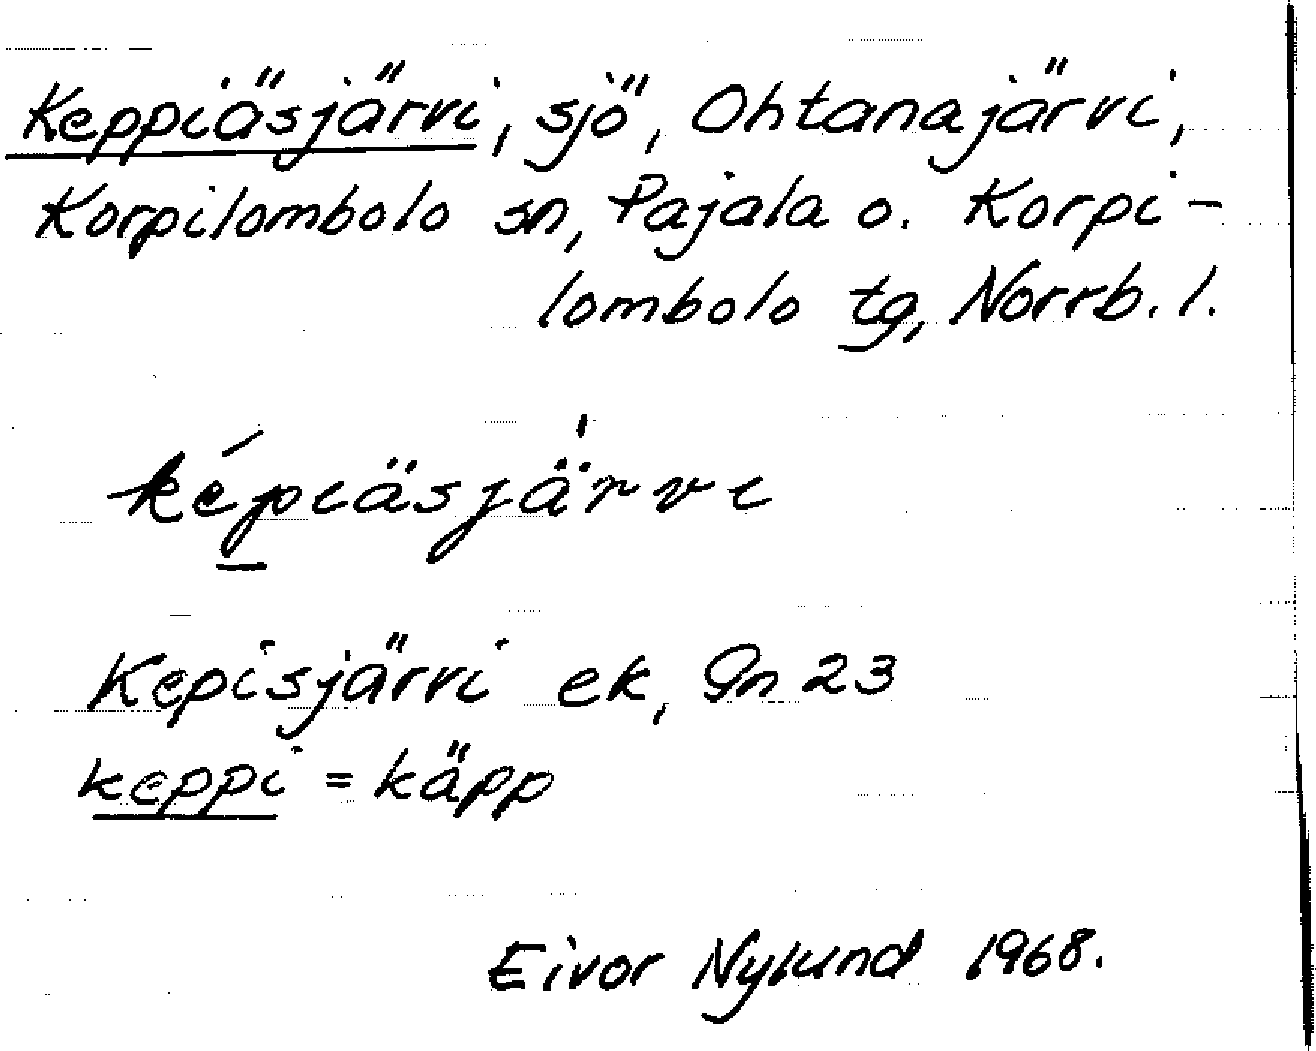 Keppiäsjärvi, sjö, Ohtanajärvi,
Korpilombolo sn, Pajala o. Korpi-
lombolo tg, Norrb. l.
képiäsjä̀rvi
Kepisjärvi ek, Gn 23
keppi = käpp
Eivor Nylund 1968.